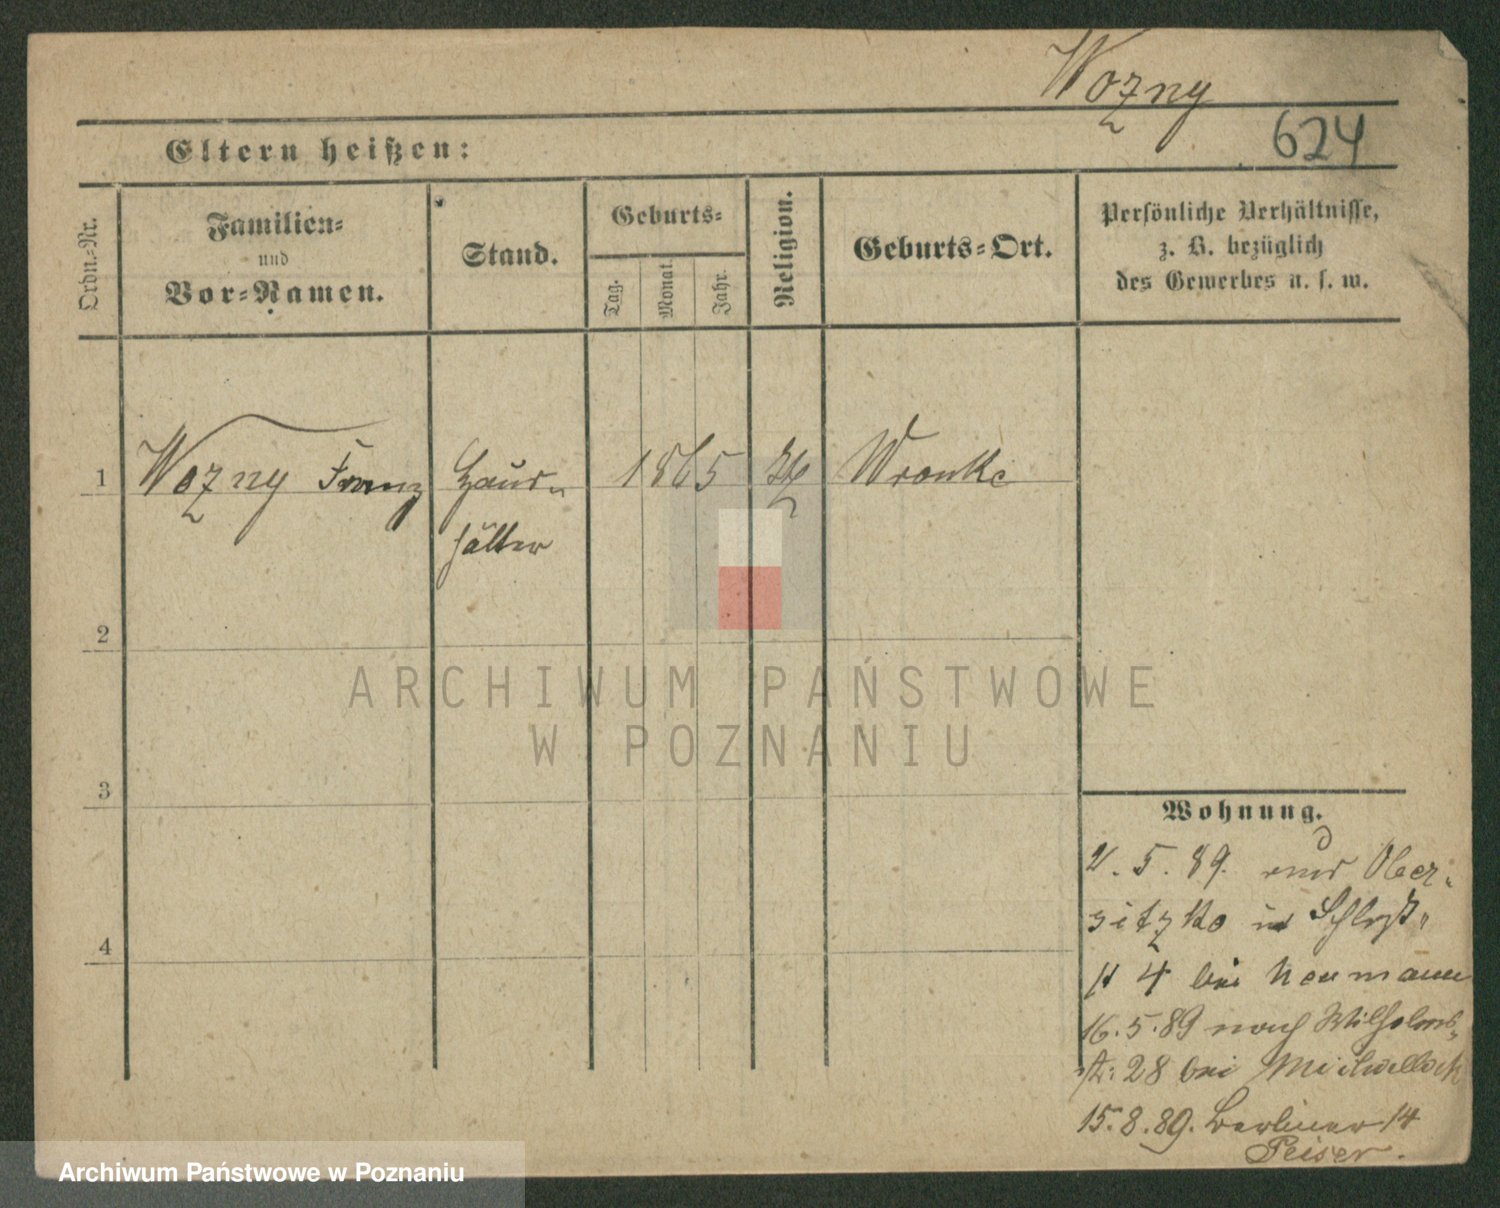 Wozny
624
Eltern heißen:
Ordn.-Nr.
Familien-
und
Vor-Namen.
Stand.
Geburts-
Tag.
Monat.
Jahr.
Religion.
Geburts-Ort.
Persönliche Verhältnisse,
z. B. bezüglich
des Gewerbes u. s. w.
1 Wozny Franz Haus- 1865 Wronke
hälter
2
3
4
ARCHIWUM PAŃSTWOWE
W POZNANIU
Wohnung.
2. 5. 89. aus Ober-
sitzko in Schloß-
4 bei Neumann
16. 5. 89 nach Wilhelms-
str. 28 bei
15. 8. 89. Berliner 14
Peiser.
Archiwum Państwowe w Poznaniu